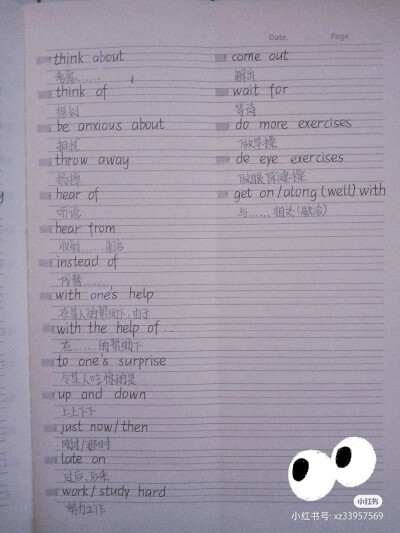 Date.
Page.
think about
考虑……
think of
想到
be anxious about
担忧
throw away
扔掉
hear of
听说
hear from
收到……来信
instead of
代替……
with one's help
在某人的帮助下,由于
with the help of ...
在……的帮助下
to one's surprise
令某人吃惊的是
up and down
上上下下
just now/then
刚才/那时
late on
过后,后来
work/study hard
努力工作
come out
wait for
等待
do more exercises
做早操
de eye exercises
做眼保健操
get on/along (well) with
与……相处(融洽)
小红书
小红书号: xz33957569